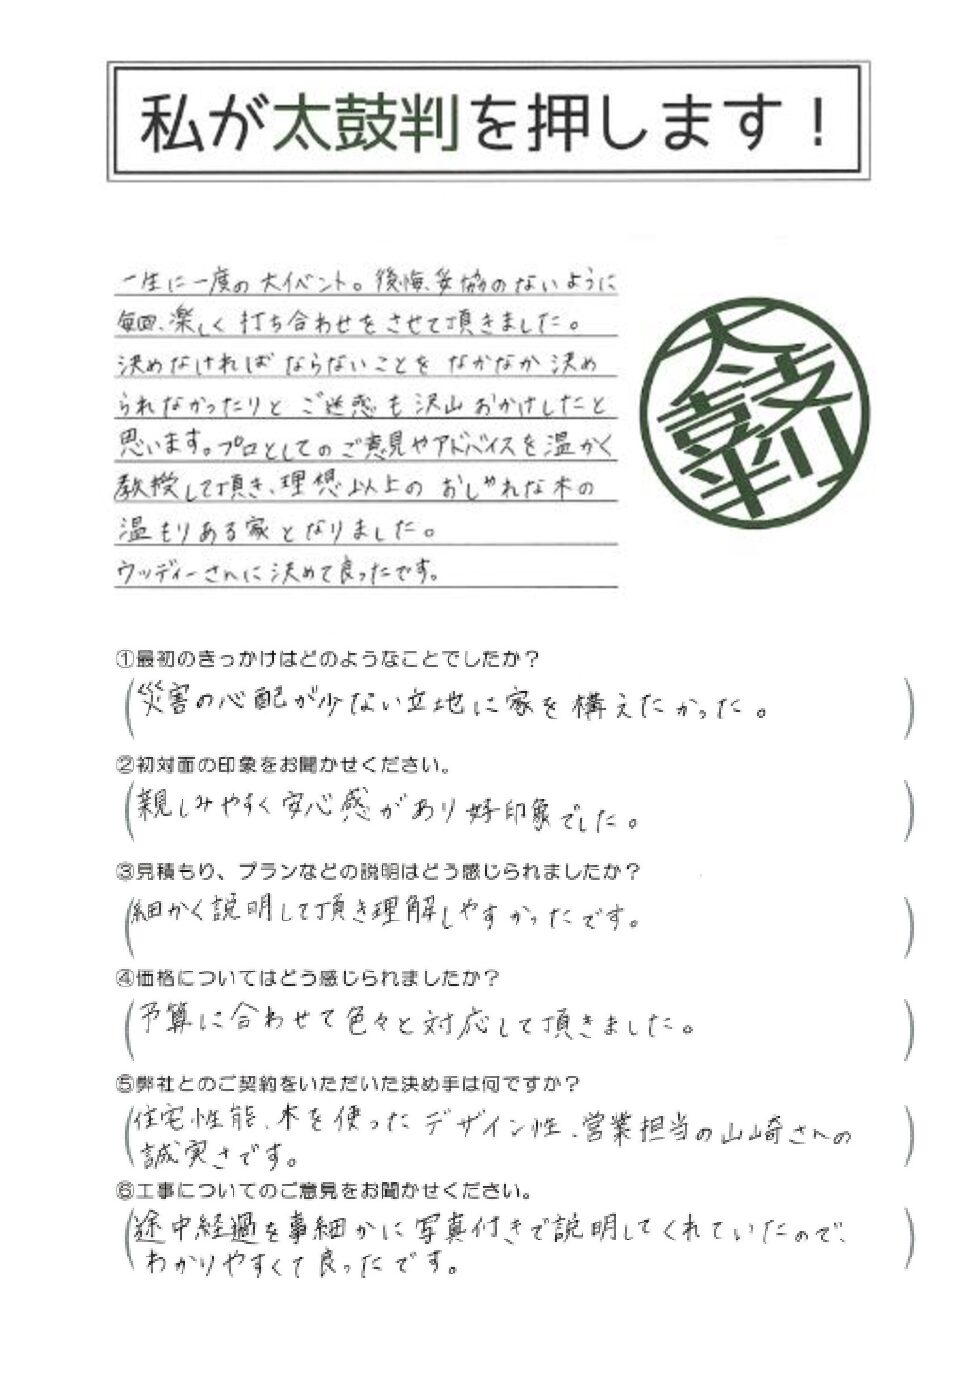 私が太鼓判を押します！
一生に一度の大イベント。後悔、妥協のないように
毎回、楽しく打ち合わせをさせて頂きました。
決めなければならないことをなかなか決め
られなかったりとご迷惑も沢山おかけしたと
思います。プロとしてのご意見やアドバイスを温かく
教授して頂き、理想以上のおしゃれな木の
温もりある家となりました。
ウッディーさんに決めて良ったです。
太鼓判
①最初のきっかけはどのようなことでしたか？
（災害の心配が少ない立地に家を構えたかった。）
②初対面の印象をお聞かせください。
（親しみやすく安心感があり好印象でした。）
③見積もり、プランなどの説明はどう感じられましたか？
（細かく説明して頂き理解しやすかったです。）
④価格についてはどう感じられましたか？
（予算に合わせて色々と対応して頂きました。）
⑤弊社とのご契約をいただいた決め手は何ですか？
（住宅性能、木を使ったデザイン性、営業担当の山崎さんの
誠実さです。）
⑥工事についてのご意見をお聞かせください。
（途中経過を事細かに写真付きで説明してくれていたので、
わかりやすくて良ったです。）